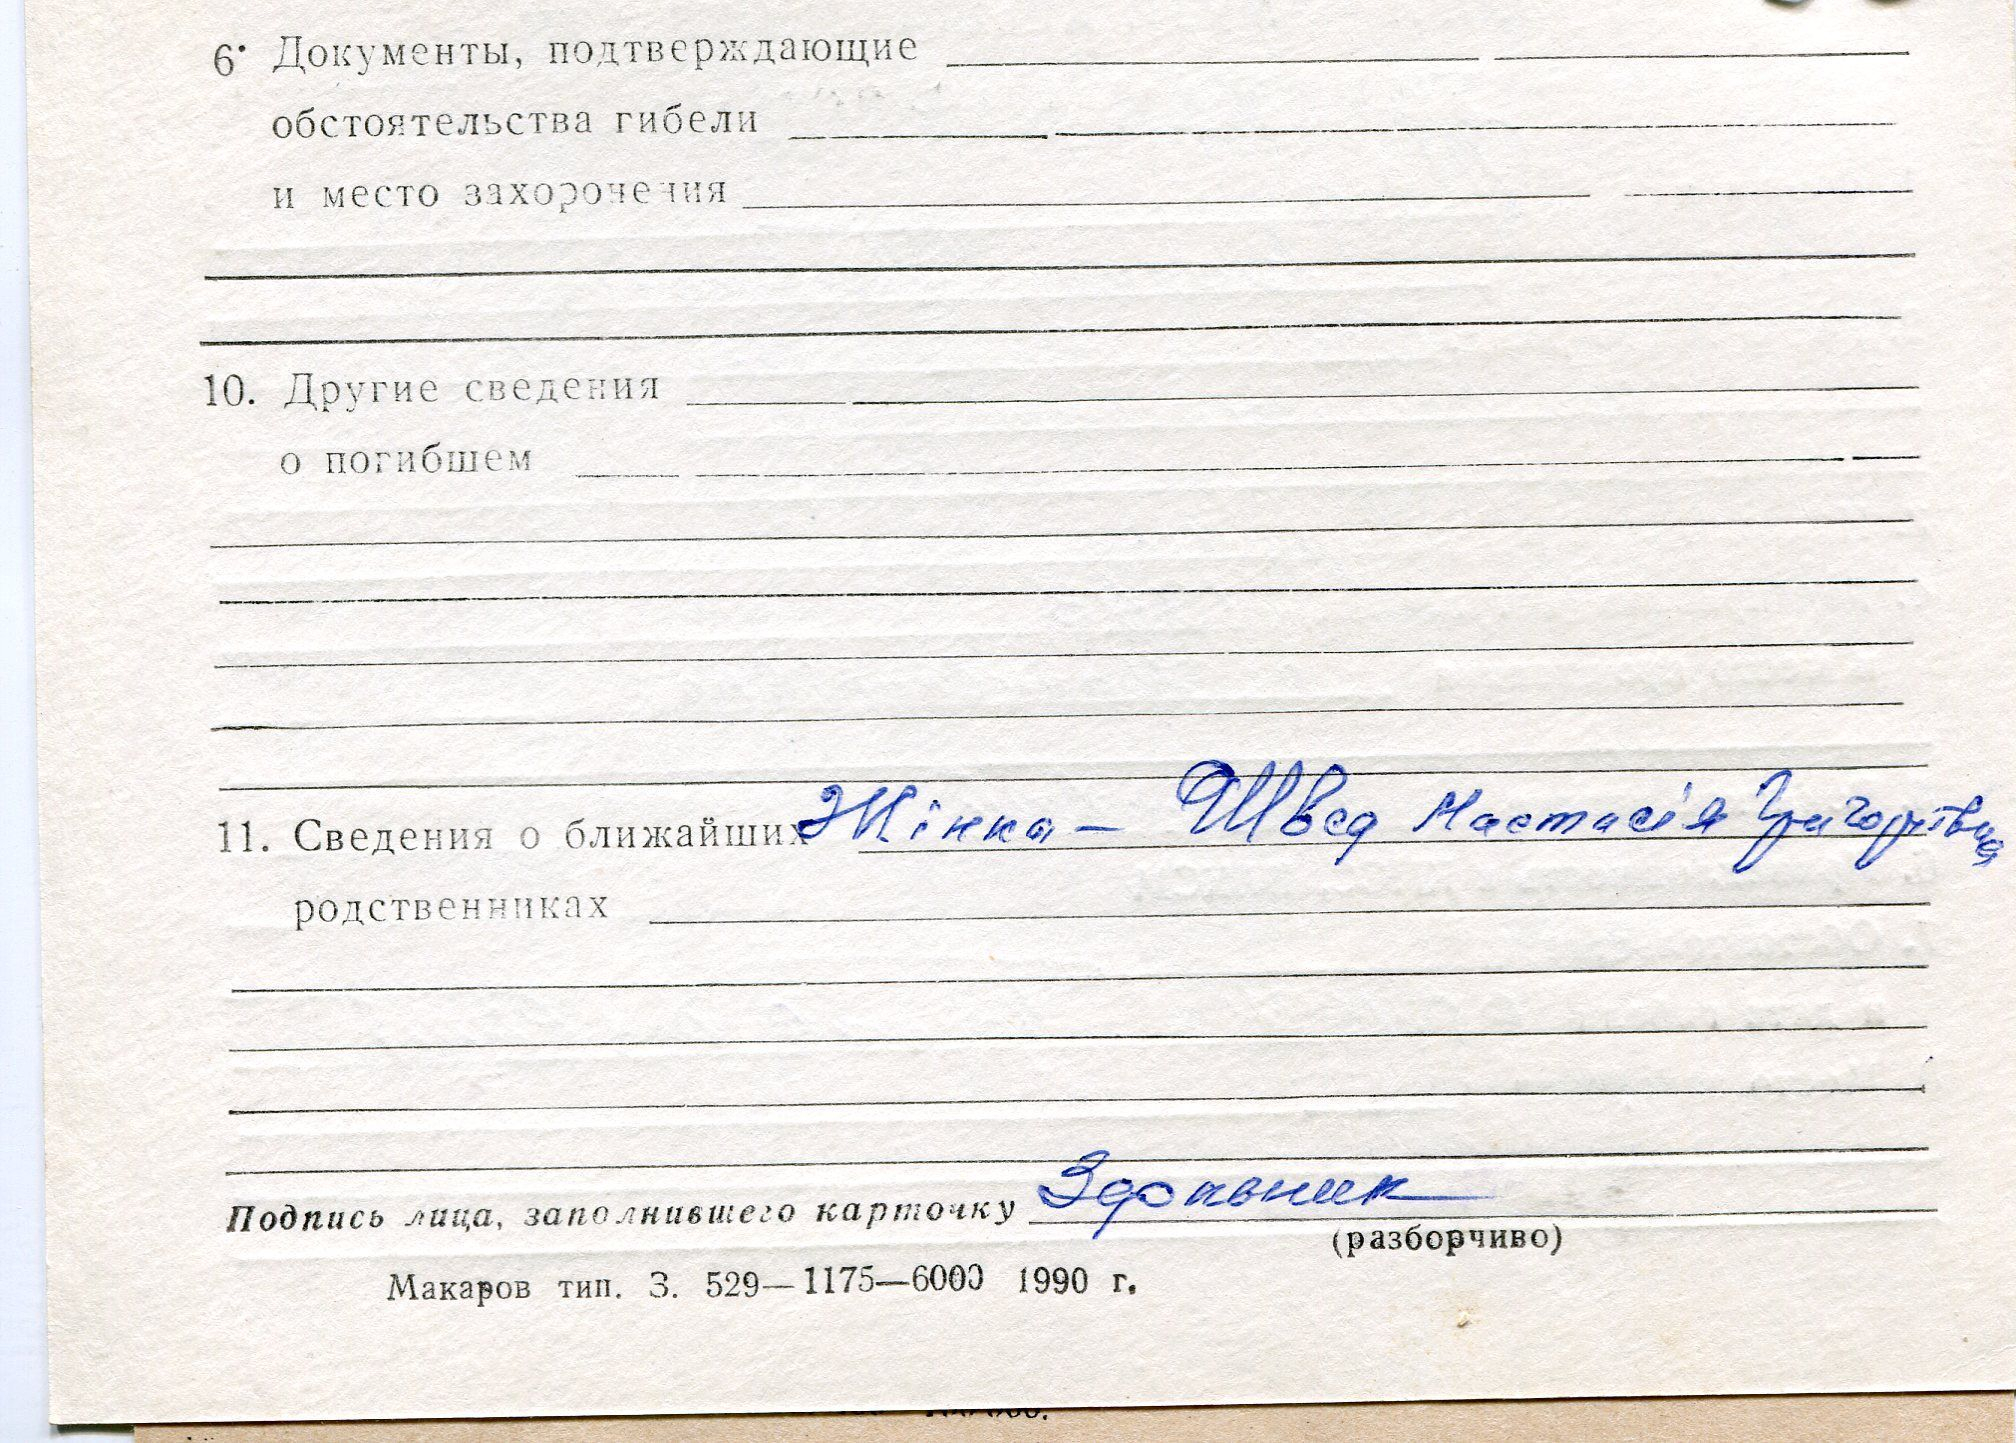 6. Документы, подтверждающие
обстоятельства гибели
и место захоронения
10. Другие сведения
о погибшем
11. Сведения о ближайших Жінка – Швед Настасія Григорівна
родственниках
Подпись лица, заполнившего карточку
(разборчиво)
Макаров тип. З. 529—1175—6000 1990 г.